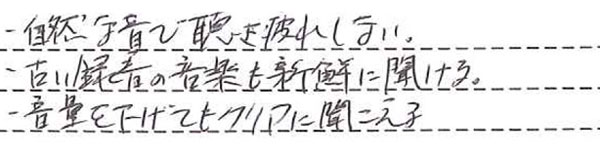 - 自然な音で聴き疲れしない。
- 古い録音の音楽も新鮮に聞ける。
- 音量を下げてもクリアに聞こえる